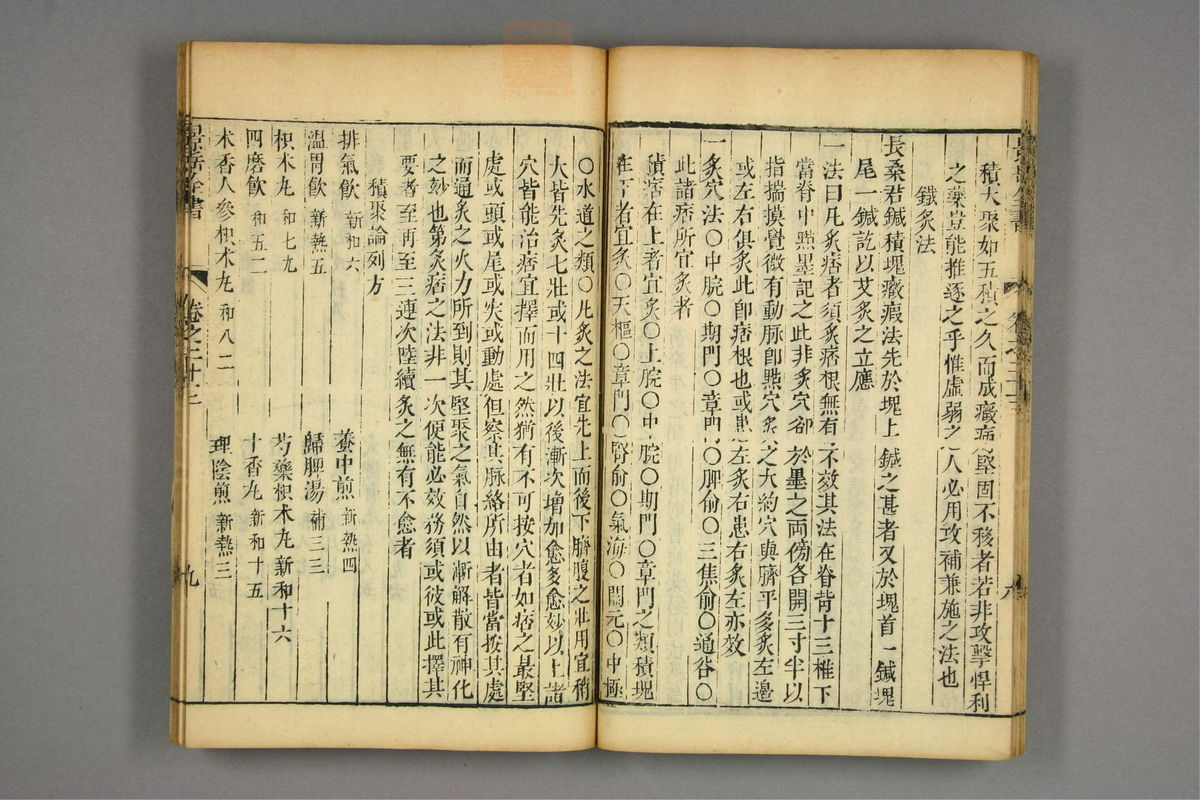 積大聚如五積之久而成癥病堅固不移者若非攻擊悍利
之藥豈能推逐之乎惟虛弱之人必用攻補兼施之法也
鍼灸法
長桑君鍼積塊癥瘕法先於塊上鍼之甚者又於塊首一鍼塊
尾一鍼訖以艾灸之立應
一法曰凡灸痞者須灸痞根無有不效其法在脊背十三椎下
當脊中點墨記之此非灸穴卻於墨之兩傍各開三寸半以
指揣摸覺微有動脉卽點穴灸之大約穴與臍平多灸左邊
或左右俱灸此卽痞根也或患左灸右患右灸左亦效
一灸穴法○中脘○期門○章門○脾俞○三焦俞○通谷○
此諸痞所宜灸者
積痞在上者宜灸○上脘○中脘○期門○章門之類積塊
在下者宜灸○天樞○章門○腎俞○氣海○關元○中極
○水道之類○凡灸之法宜先上而後下臍腹之壯用宜稍
大皆先灸七壯或十四壯以後漸次增加愈多愈妙以上諸
穴皆能治痞宜擇而用之然猶有不可按穴者如痞之最堅
處或頭或尾或突或動處但察其脉絡所由者皆當按其處
而通灸之火力所到則其堅聚之氣自然以漸解散有神化
之妙也第灸痞之法非一次便能必效務須或彼或此擇其
要者至再至三連次陸續灸之無有不愈者
積聚論列方
排氣飲 新和六 養中煎 新熱四
溫胃飲 新熱五 歸脾湯 補三三
枳朮丸 和七九 芍藥枳朮丸 新和十六
四磨飲 和五二 十香丸 新和十五
木香人參枳朮丸 和八二 理陰煎 新熱三
景岳全書 卷之二十三 九